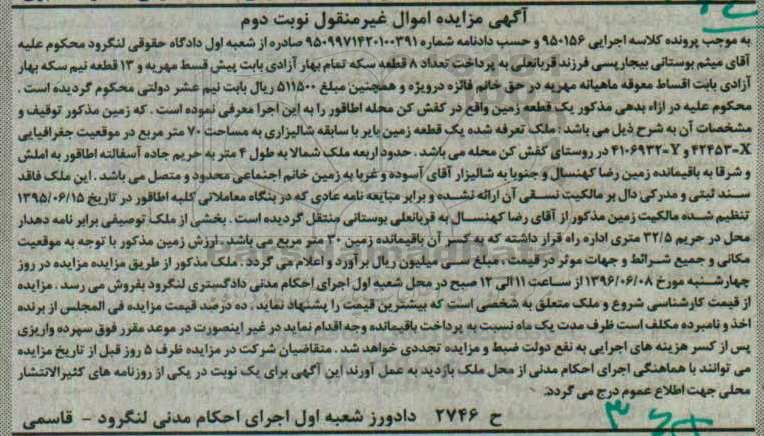 آگهی مزایده اموال غیرمنقول نوبت دوم
به موجب پرونده کلاسه اجرایی ۹۵۰۱۵۶ و حسب دادنامه شماره ۹۵۰۹۹۷۱۴۲۰۱۰۰۳۹۱ صادره از شعبه اول دادگاه حقوقی لنگرود محکوم علیه
آقای میثم بوستانی بیجارپسی فرزند قربانعلی به پرداخت تعداد ۸ قطعه سکه تمام بهار آزادی بابت پیش قسط مهریه و ۱۳ قطعه نیم سکه بهار
آزادی بابت اقساط معوقه ماهیانه مهریه در حق خانم فائزه درویزه و همچنین مبلغ ۵۱۱۵۰۰ ریال بابت نیم عشر دولتی محکوم گردیده است .
محکوم علیه در ازاء بدهی مذکور یک قطعه زمین واقع در کفش کن محله اطاقور را به این اجرا معرفی نموده است . که زمین مذکور توقیف و
مشخصات آن به شرح ذیل می باشد : ملک تعرفه شده یک قطعه زمین بایر با سابقه شالیزاری به مساحت ۷۰ متر مربع در موقعیت جغرافیایی
X-۴۲۴۵۳ و Y-۴۱۰۶۹۳۲ در روستای کفش کن محله می باشد . حدود اربعه ملک شمالا به طول ۴ متر به حریم جاده آسفالته اطاقور به املش
و شرقا به باقیمانده زمین رضا کهنسال و جنوبا به شالیزار آقای آسوده و غربا به زمین خانم اجتماعی محدود و متصل می باشد . این ملک فاقد
سند ثبتی و مدرکی دال بر مالکیت نسقی آن ارائه نشده و برابر مبایعه نامه عادی که در بنگاه معاملاتی کلبه اطاقور در تاریخ ۱۳۹۵/۰۶/۱۵
تنظیم شده مالکیت زمین مذکور از آقای رضا کهنسال به قربانعلی بوستانی منتقل گردیده است . بخشی از ملک توصیفی برابر نامه دهدار
محل در حریم ۳۲/۵ متری اداره راه قرار داشته که به کسر آن باقیمانده زمین ۳۰ متر مربع می باشد . ارزش زمین مذکور با توجه به موقعیت
مکانی و جمیع شرائط و جهات موثر در قیمت ، مبلغ سی میلیون ریال برآورد و اعلام می گردد . ملک مذکور از طریق مزایده مزایده در روز
چهارشنبه مورخ ۱۳۹۶/۰۶/۰۸ از ساعت ۱۱ الی ۱۲ صبح در محل شعبه اول اجرای احکام مدنی دادگستری لنگرود بفروش می رسد . مزایده
از قیمت کارشناسی شروع و ملک متعلق به شخصی است که بیشترین قیمت را پیشنهاد نماید . ده درصد قیمت مزایده فی المجلس از برنده
اخذ و نامبرده مکلف است ظرف مدت یک ماه نسبت به پرداخت باقیمانده وجه اقدام نماید در غیر اینصورت در موعد مقرر فوق سپرده واریزی
پس از کسر هزینه های اجرایی به نفع دولت ضبط و مزایده تجددی خواهد شد . متقاضیان شرکت در مزایده ظرف ۵ روز قبل از تاریخ مزایده
می توانند با هماهنگی اجرای احکام مدنی از محل ملک بازدید به عمل آورند این آگهی برای یک نوبت در یکی از روزنامه های کثیرالانتشار
محلی جهت اطلاع عموم درج می گردد.
ح ۲۷۴۶ دادورز شعبه اول اجرای احکام مدنی لنگرود - قاسمی